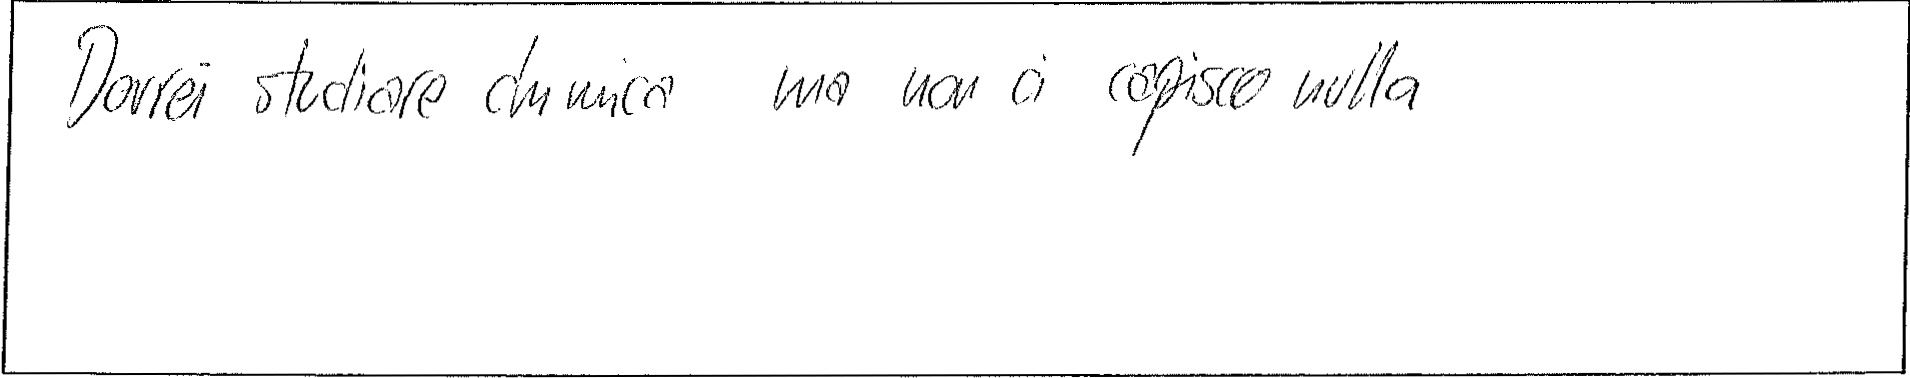 Dovrei studiare chimica ma non ci capisco nulla